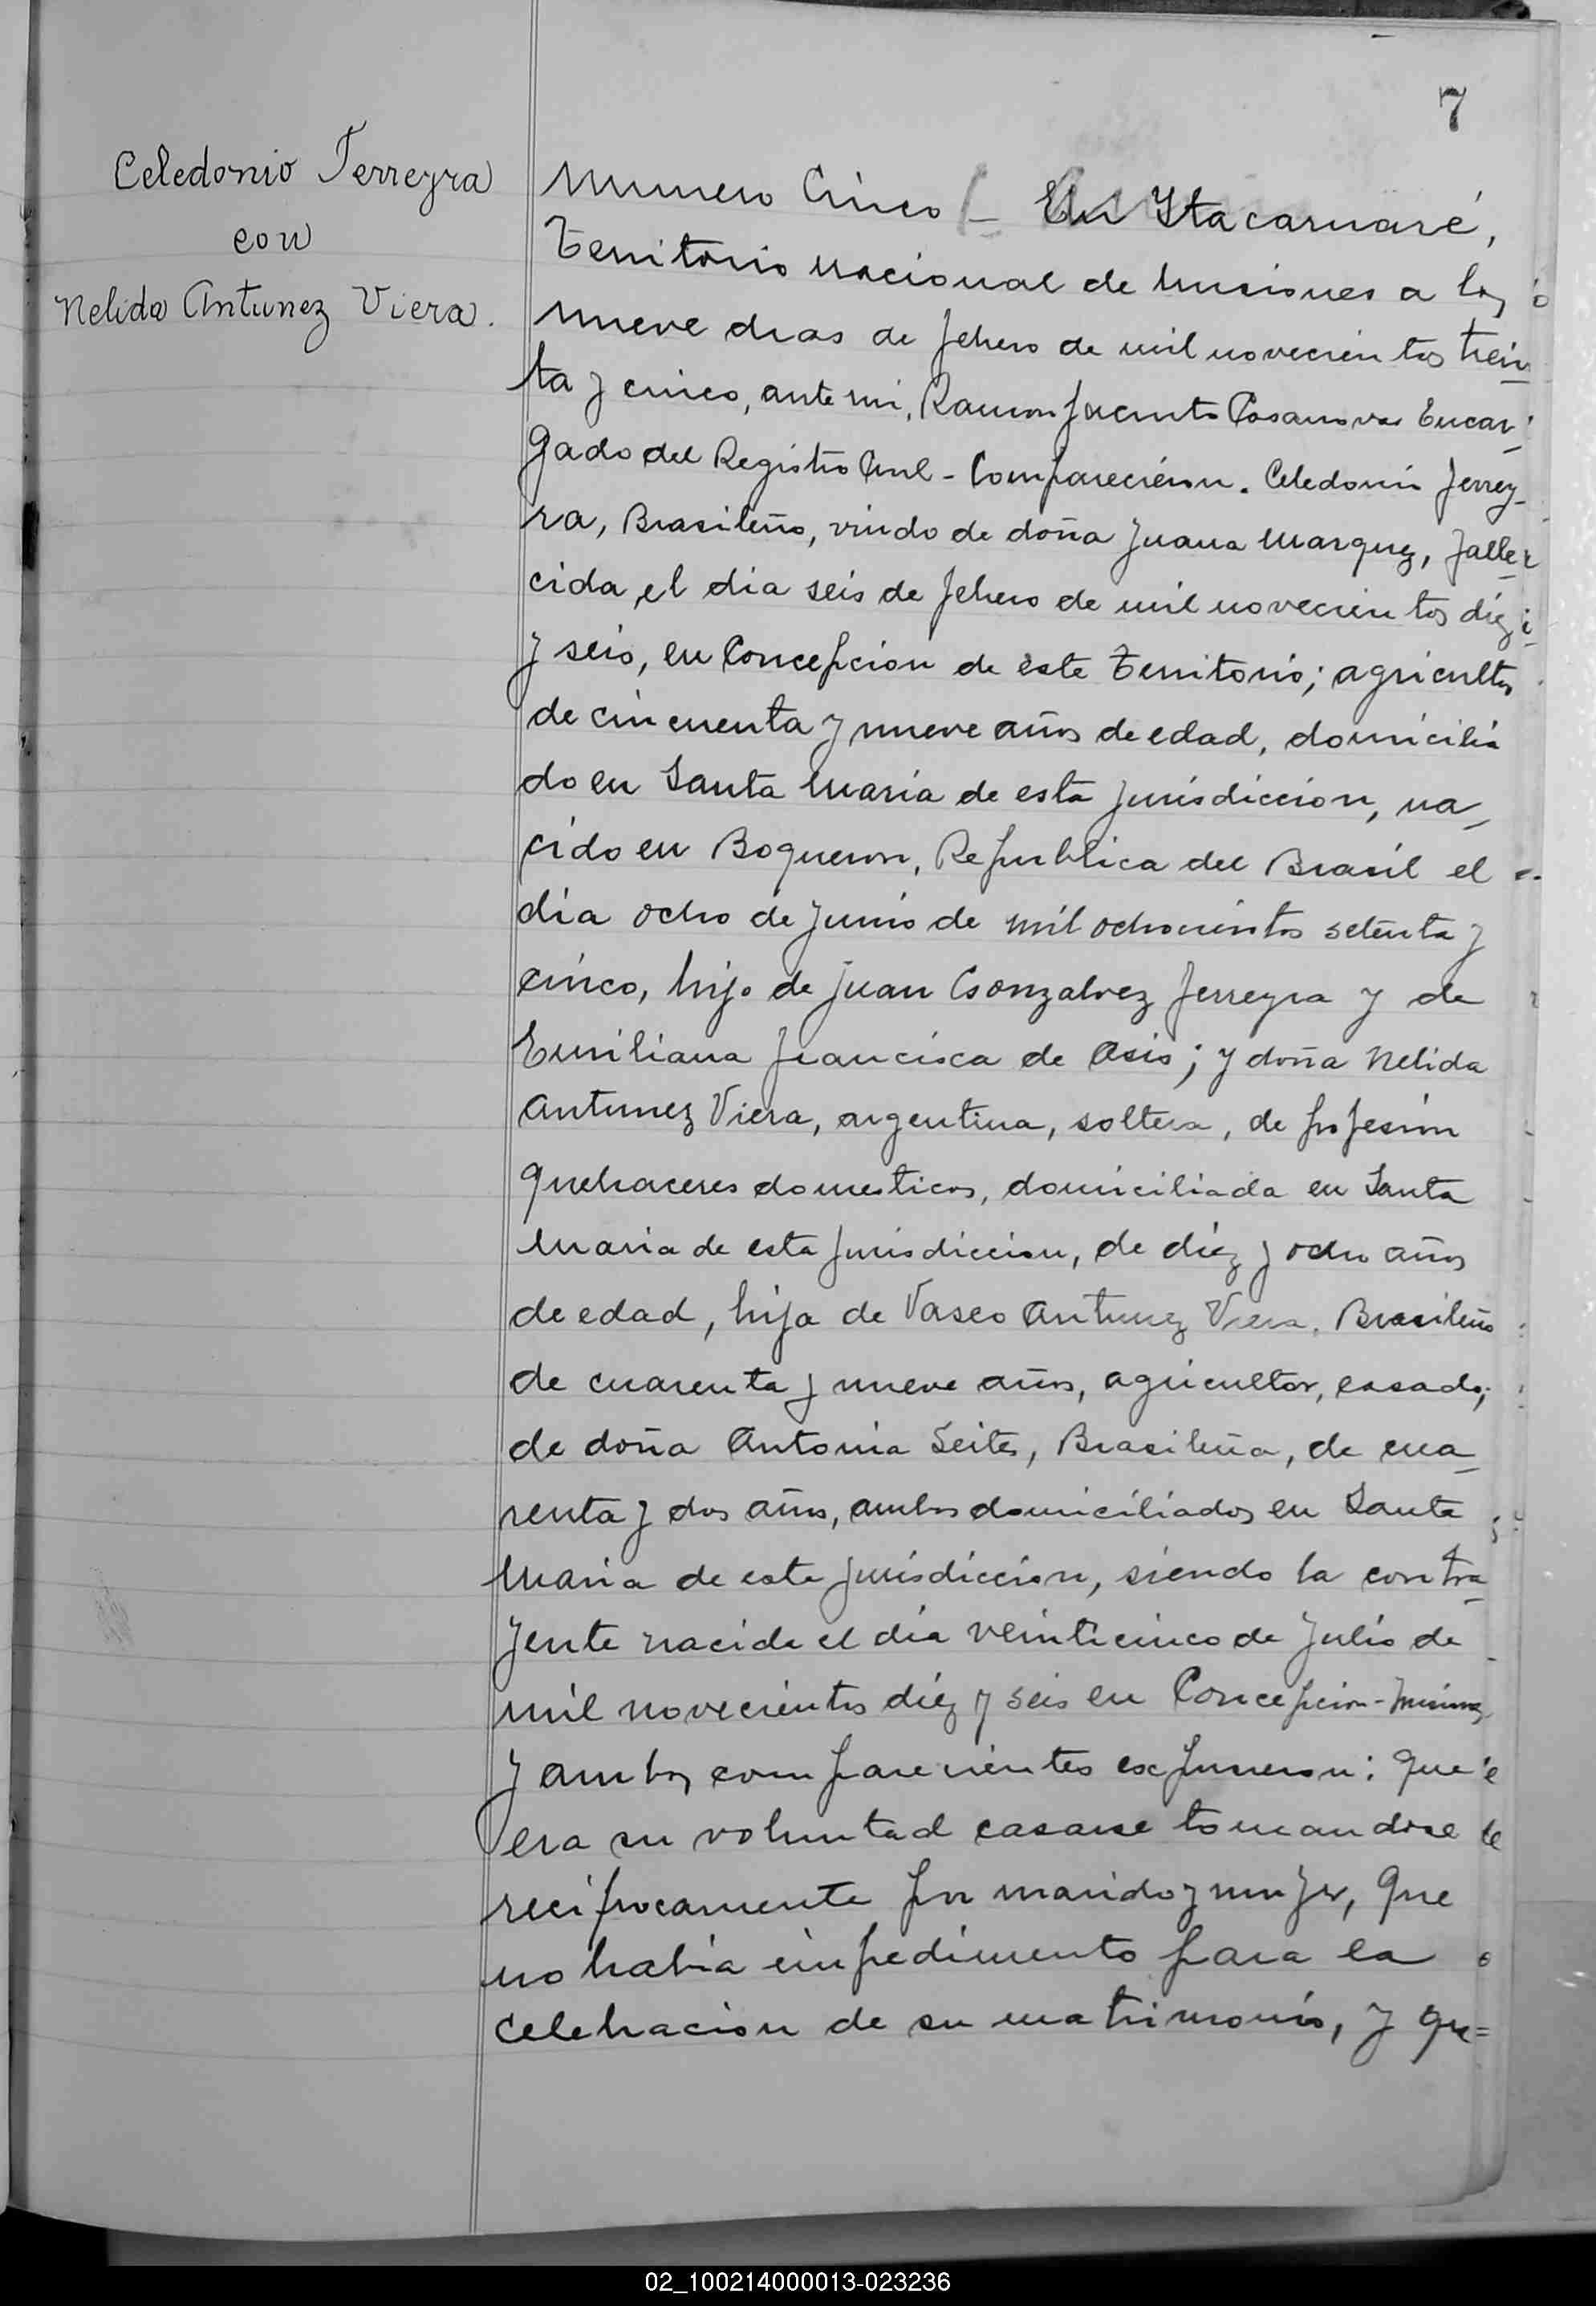 7
Celedonio Ferreyra
con
Nelida Antunez Viera.
Numero Cinco - En Itacaruaré,
Territorio nacional de Misiones a los
nueve dias de febrero de mil novecientos trein
ta y cinco, ante mi, Ramon Jacinto Casanovas Encar
gado del Registro Civil - Comparecieron. Celedonio Ferrey
ra, Brasileño, viudo de doña Juana Marquez, falle
cida, el dia seis de febrero de mil novecientos diez
y seis, en Concepcion de este Territorio; agricultor
de cincuenta y nueve años de edad, domicilia
do en Santa Maria de esta jurisdiccion, na
cido en Boqueron, Republica del Brasil el
dia ocho de Junio de mil ochocientos setenta y
cinco, hijo de Juan Gonzalvez Ferreyra y de
Emiliana Francisca de Asis; y doña Nelida
Antunez Viera, argentina, soltera, de profesion
quehaceres domesticos, domiciliada en Santa
Maria de esta jurisdiccion, de diez y ocho años
de edad, hija de Vasco Antunez Viera. Brasileño
de cuarenta y nueve años, agricultor, casado;
de doña Antonia Seites, Brasileña, de cua
renta y dos años, ambos domiciliados en Santa
Maria de esta jurisdiccion, siendo la contra
yente nacida el dia veinticinco de Julio de
mil novecientos diez y seis en Concepcion - Misiones
y ambos comparecientes expusieron: que
era su voluntad casarse tomandose
reciprocamente por marido y mujer, que
no habia impedimento para la
celebracion de su matrimonio, y que=
02_100214000013-023236